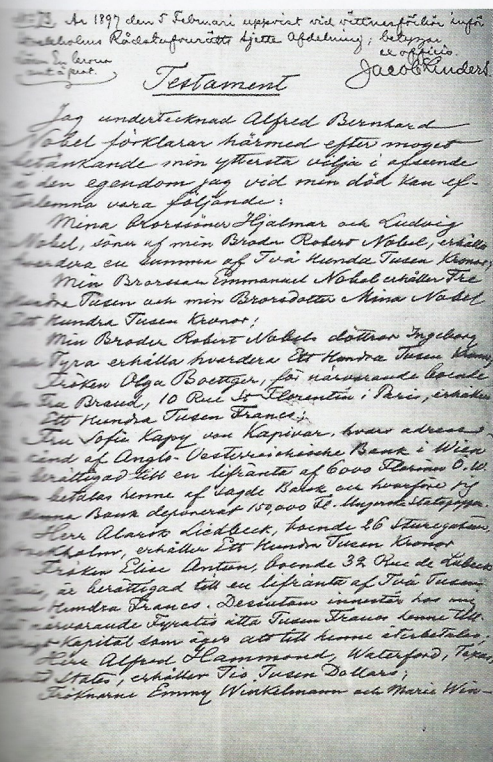 No 73. År 1897 den 5 Februari uppvist vid vittnesförhör inför
Stockholms Rådstufvurätts Sjette Afdelning; betygar
ex officio.
Jacob Linders
Testament
Jag undertecknad Alfred Bernhard
Nobel förklarar härmed efter moget
betänkande min yttersta vilja i afseende
å den egendom jag vid min död kan ef-
terlemna vara följande:
Mina Brorsöner Hjalmar och Ludvig
Nobel, söner af min Broder Robert Nobel, erhålla
hvardera en summa af Två Hundra Tusen Kronor;
Min Brorson Emmanuel Nobel erhåller Tre
Hundra Tusen och min Brorsdotter Mina Nobel
Ett Hundra Tusen Kronor;
Min Broder Robert Nobels döttrar Ingeborg
och Tyra erhålla hvardera Ett Hundra Tusen Kronor;
Fröken Olga Boettger, för närvarande boende
hos Fru Brand, 10 Rue St Florentin i Paris, erhåller
Ett Hundra Tusen Francs;
Fru Sofie Kapy von Kapivar, hvars adress är
känd af Anglo-Oesterreichische Bank i Wien
är berättigad till en lifränta af 6000 Florins Ö.W.
som betalas henne af sagde Bank och hvarföre jag
i denna Bank deponerat 150,000 Fl. i Ungerska Statspapper;
Herr Alarik Liedbeck, boende 26 Sturegatan,
Stockholm, erhåller Ett Hundra Tusen Kronor
Fröken Elise Antun, boende 32 Rue de Lubeck,
Paris, är berättigad till en lifränta af Två Tusen
Fem Hundra Francs. Dessutom innestår hos mig
för närvarande Fyratio åtta Tusen Francs henne till-
hörigt Kapital som äger att till henne återbetalas;
Herr Alfred Hammond, Waterford, Texas,
United States, erhåller Tio Tusen Dollars;
Fröknarne Emmy Winkelmann och Marie Win-